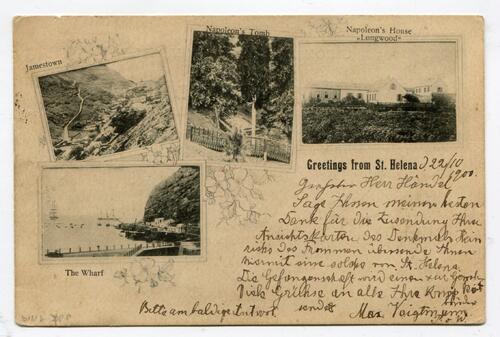 Jamestown
Napoleon's Tomb
Napoleon's House
„Longwood"
Greetings from St. Helena d 22/10
1900.
Geehrter Herr Händel
Sage Ihnen meinen besten
Dank für die Zusendung Ihrer
Ansichtskarten des Denkmals Hein
richs des Frommen übersende Ihnen
hiermit eine solche von St. Helena.
Die Gefangenschaft wird einem zur
Viele Grüsse an alle Ihre
sendet Max
Bitte um baldige Antwort
The Wharf